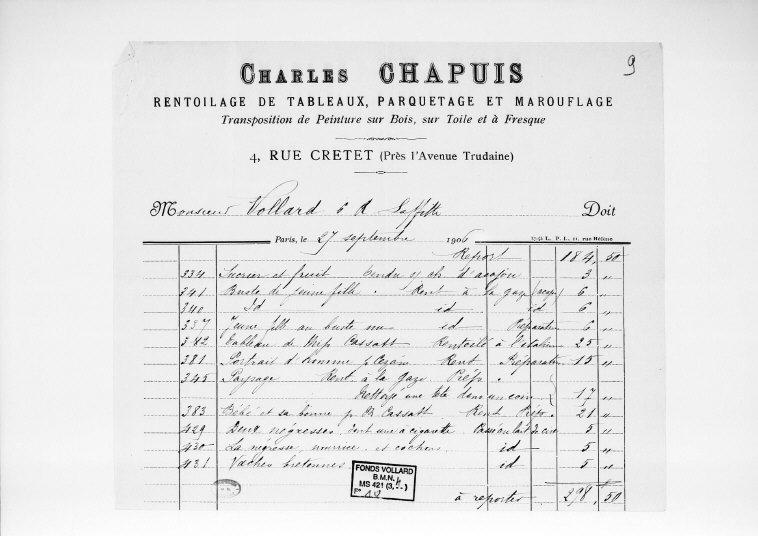 9
CHARLES CHAPUIS
RENTOILAGE DE TABLEAUX, PARQUETAGE ET MAROUFLAGE
Transposition de Peinture sur Bois, sur Toile et à Fresque
4, RUE CRETET (Près l'Avenue Trudaine)
Monsieur Vollard 6 R Laffitte Doit
Paris, le 27 septembre 1906 L. P. L., 11, rue Hélène
Report 184,50
334 Sucrier et fruit tendu s/ ch. d'acajou 3 "
341 Buste de jeune fille. Rent à la gaze 6 "
340 Id id id 6 "
337 Jeune fille au buste nu id Préparation 6 "
342 Tableau de Miss Cassatt Rentoilé à 25 "
381 Portrait d'homme p Cezan Rent Préparation 15 "
345 Paysage Rent. à la gaze Prépr "
Nettoyé une tête dans un coin 17 "
383 Bébé et sa bonne p. M Cassatt. Rent Prépr. 21 "
429 Deux négresses, dont une à cigarette. 5 "
430 La négresse, nourrice et cochers id 5 "
431 Vaches bretonnes id 5 "
FONDS VOLLARD
B.M.N.
MS 421 (3,4)
F°
à reporter 298,50